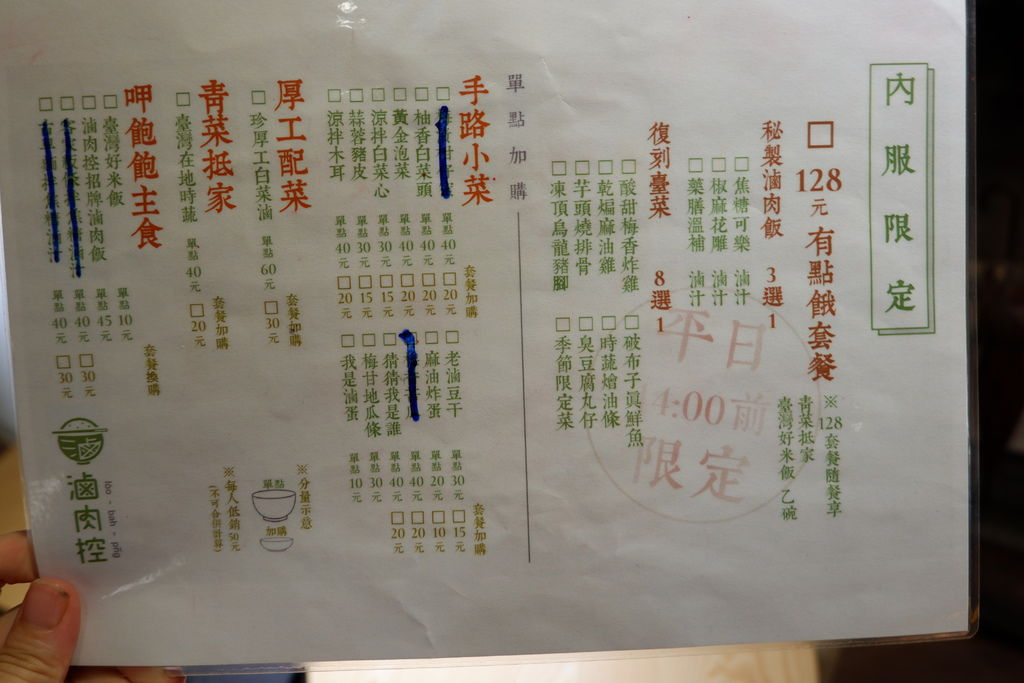 內服限定
□ 128元 有點餓套餐
※128套餐隨餐享
青菜抵家
臺灣好米飯 乙碗
秘製滷肉飯 3選1
□焦糖可樂 滷汁
□椒麻花雕 滷汁
□藥膳溫補 滷汁
復刻臺菜 8選1
□酸甜梅香炸雞
□乾煸麻油雞
□芋頭燒排骨
□凍頂烏龍豬腳
□破布子真鮮魚
□時蔬燴油條
□臭豆腐丸仔
□季節限定菜
平日
14:00前
限定
單點加購
手路小菜
套餐加購
單點40元 □20元
□柚香白菜頭 單點40元 □20元
□黃金泡菜 單點40元 □20元
□涼拌白菜心 單點30元 □15元
□蒜蓉豬皮 單點30元 □15元
□涼拌木耳 單點40元 □20元
套餐加購
□老滷豆干 單點30元 □15元
□麻油炸蛋 單點20元 □10元
單點40元 □20元
□猜猜我是誰 單點40元 □20元
□梅甘地瓜條 單點30元
□我是滷蛋 單點10元
厚工配菜
套餐加購
□珍厚工白菜滷 單點60元 □30元
青菜抵家
套餐加購
□臺灣在地時蔬 單點40元 □20元
呷飽飽主食
套餐換購
□臺灣好米飯 單點10元
□滷肉控招牌滷肉飯 單點45元 □30元
單點40元 □30元
單點40元
※分量示意
單點
加購
※每人低銷50元
(不可合併計算)
滷
滷肉控
lóo-bah-pn̄g